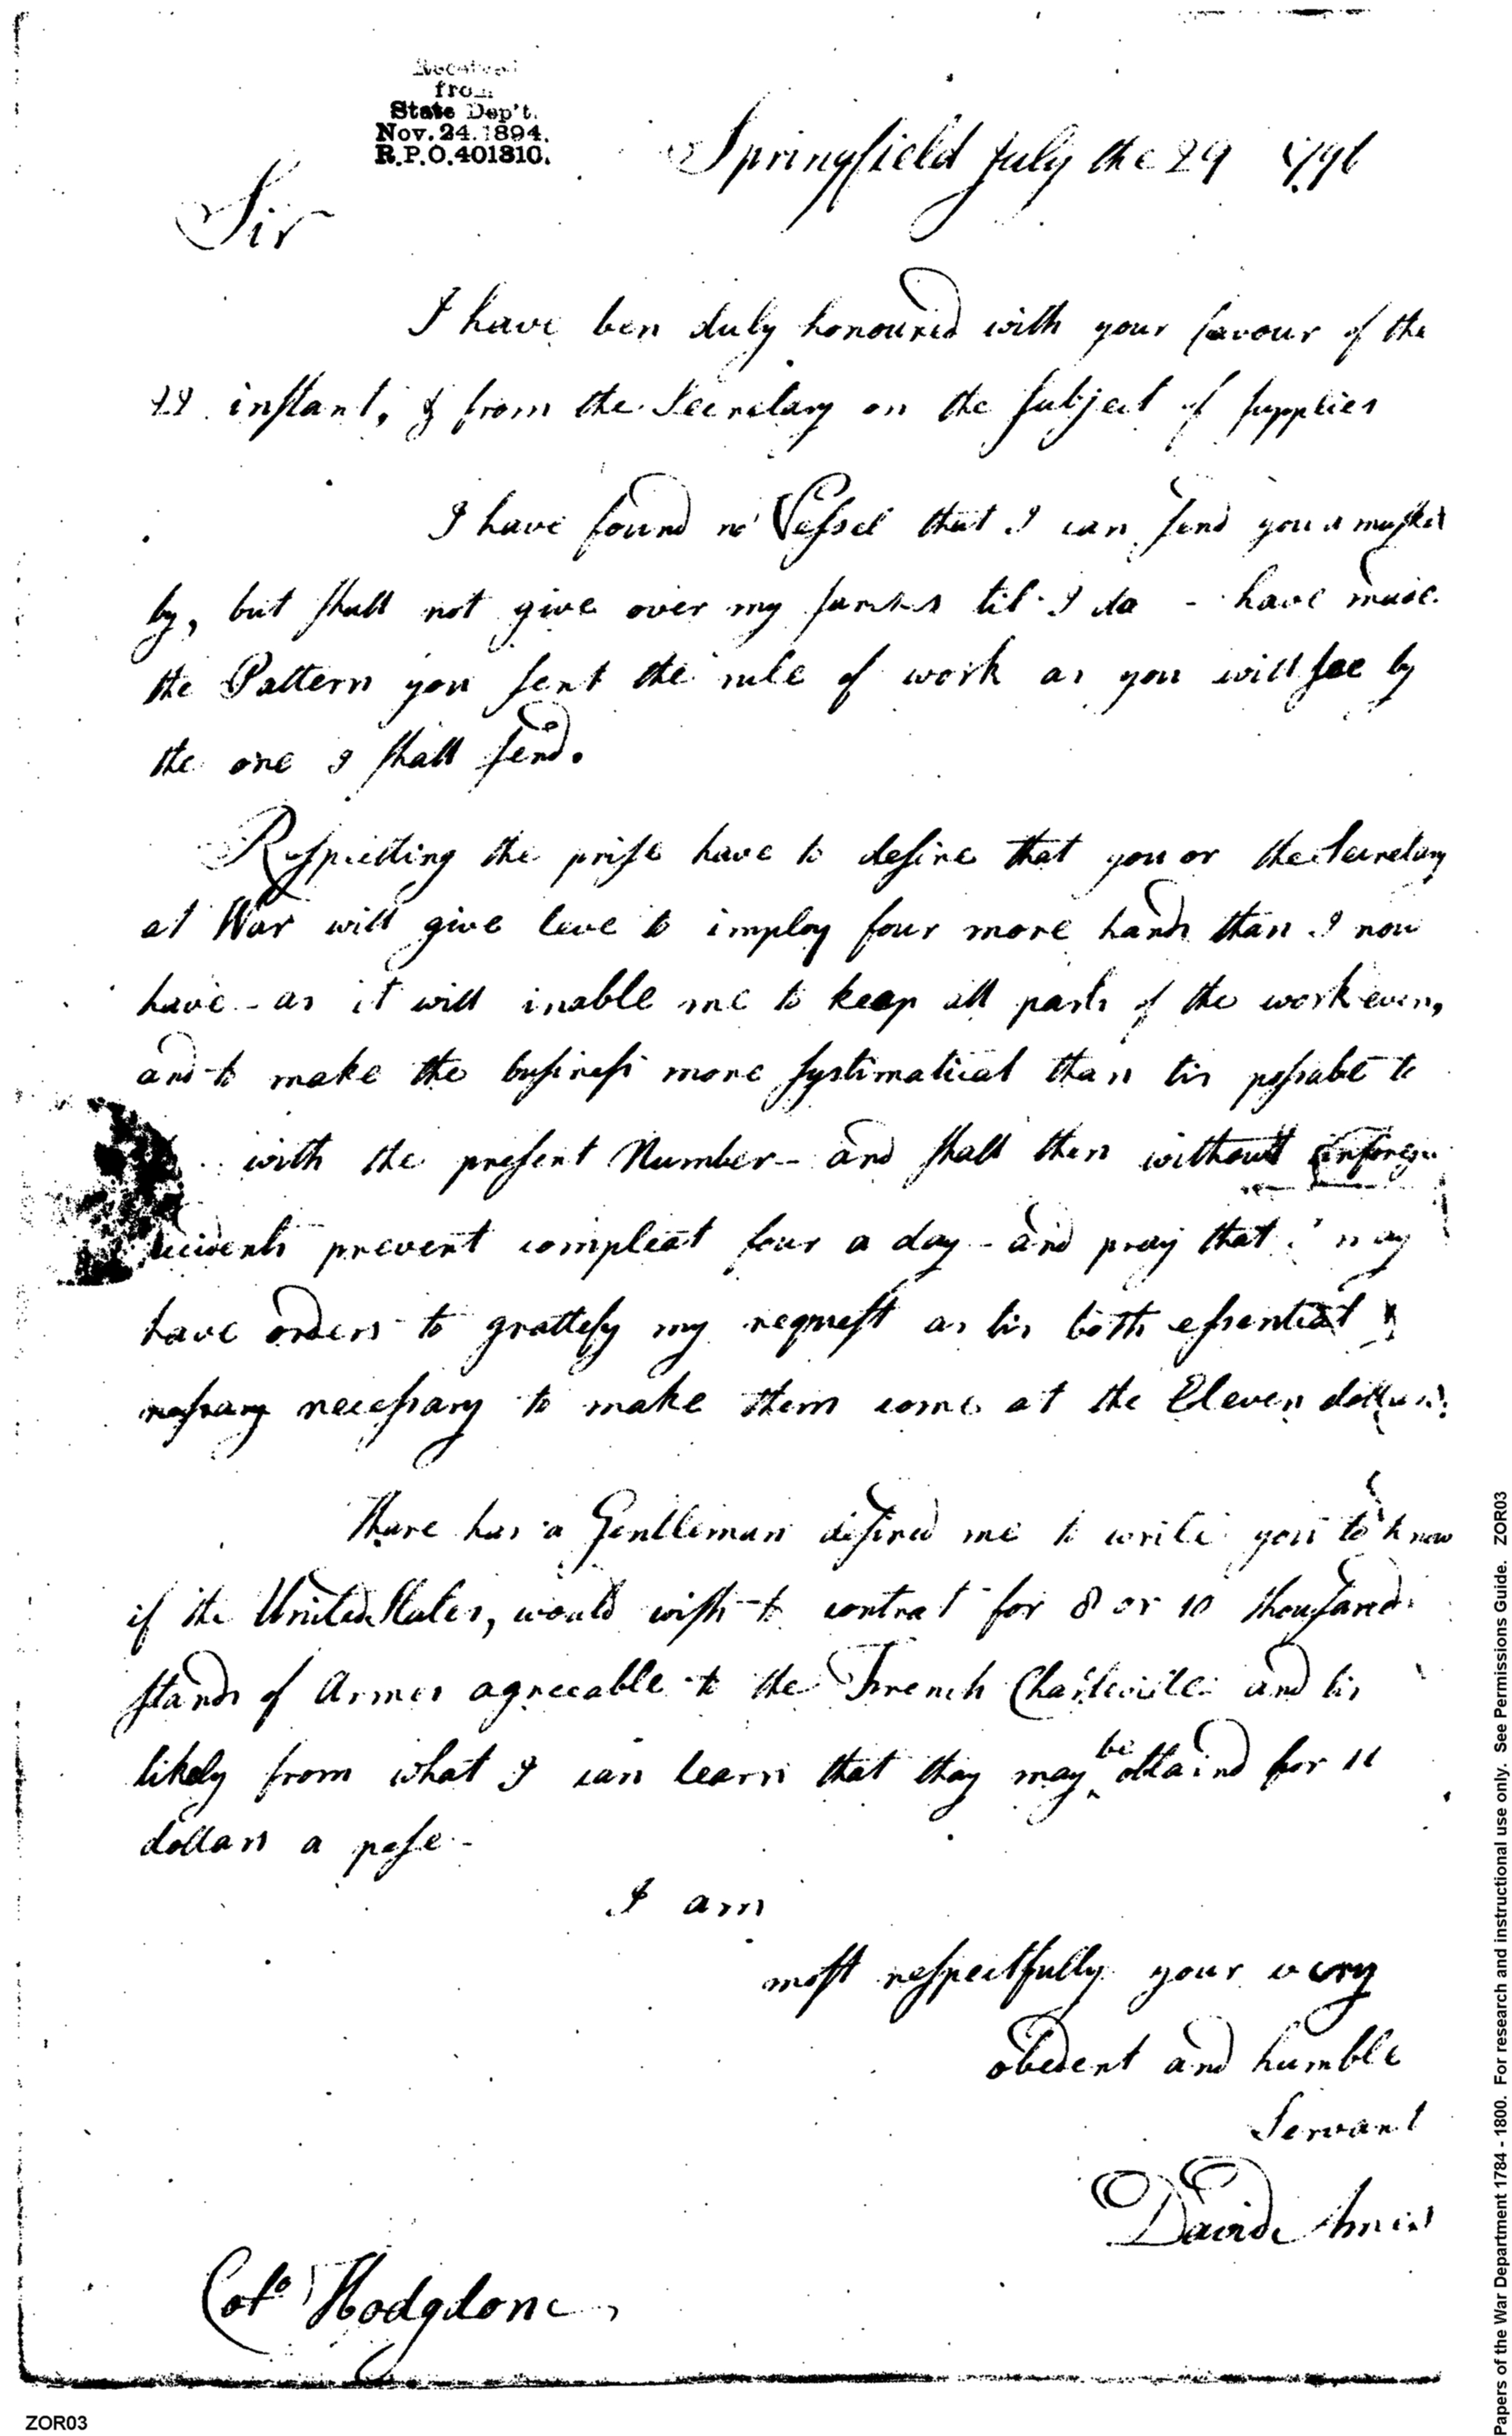 Received
from
State Dep't.
Nov. 24. 1894.
R.P.O. 401810.
Springfield July the 29 1796
Sir
I have ben duly honoured with your favour of the
22 instant, & from the Secretary on the subject of supplies
I have found no Vessel that I can send you a musket
by, but shall not give over my til I do - have made
the Pattern you sent the rule of work as you will see by
the one I shall send.
Respectting the prise have to desire that you or the Secretary
at War will give leve to imploy four more hands than I now
have - as it will inable me to keep all parts of the work even,
and to make the business more systimatical than tis possabel to
with the present Number - and shall then without
prevent compleat four a day - and pray that I may
have orders to grattefy my request as tis both essential &
necessary to make them come at the Eleven dollars.
Thare has a Gentleman desired me to write you to know
if the United States, would wish to contrat for 8 or 10 thousand
stands of Armes agreeable to the French Charleville and tis
likely from what I can learn that thay may be obtaind for 11
dollars a pese -
I am
most respectfully your very
obedent and humble
Servant
David Ames
Colo Hodgdone
ZOR03
Papers of the War Department 1784 - 1800. For research and instructional use only. See Permissions Guide. ZOR03